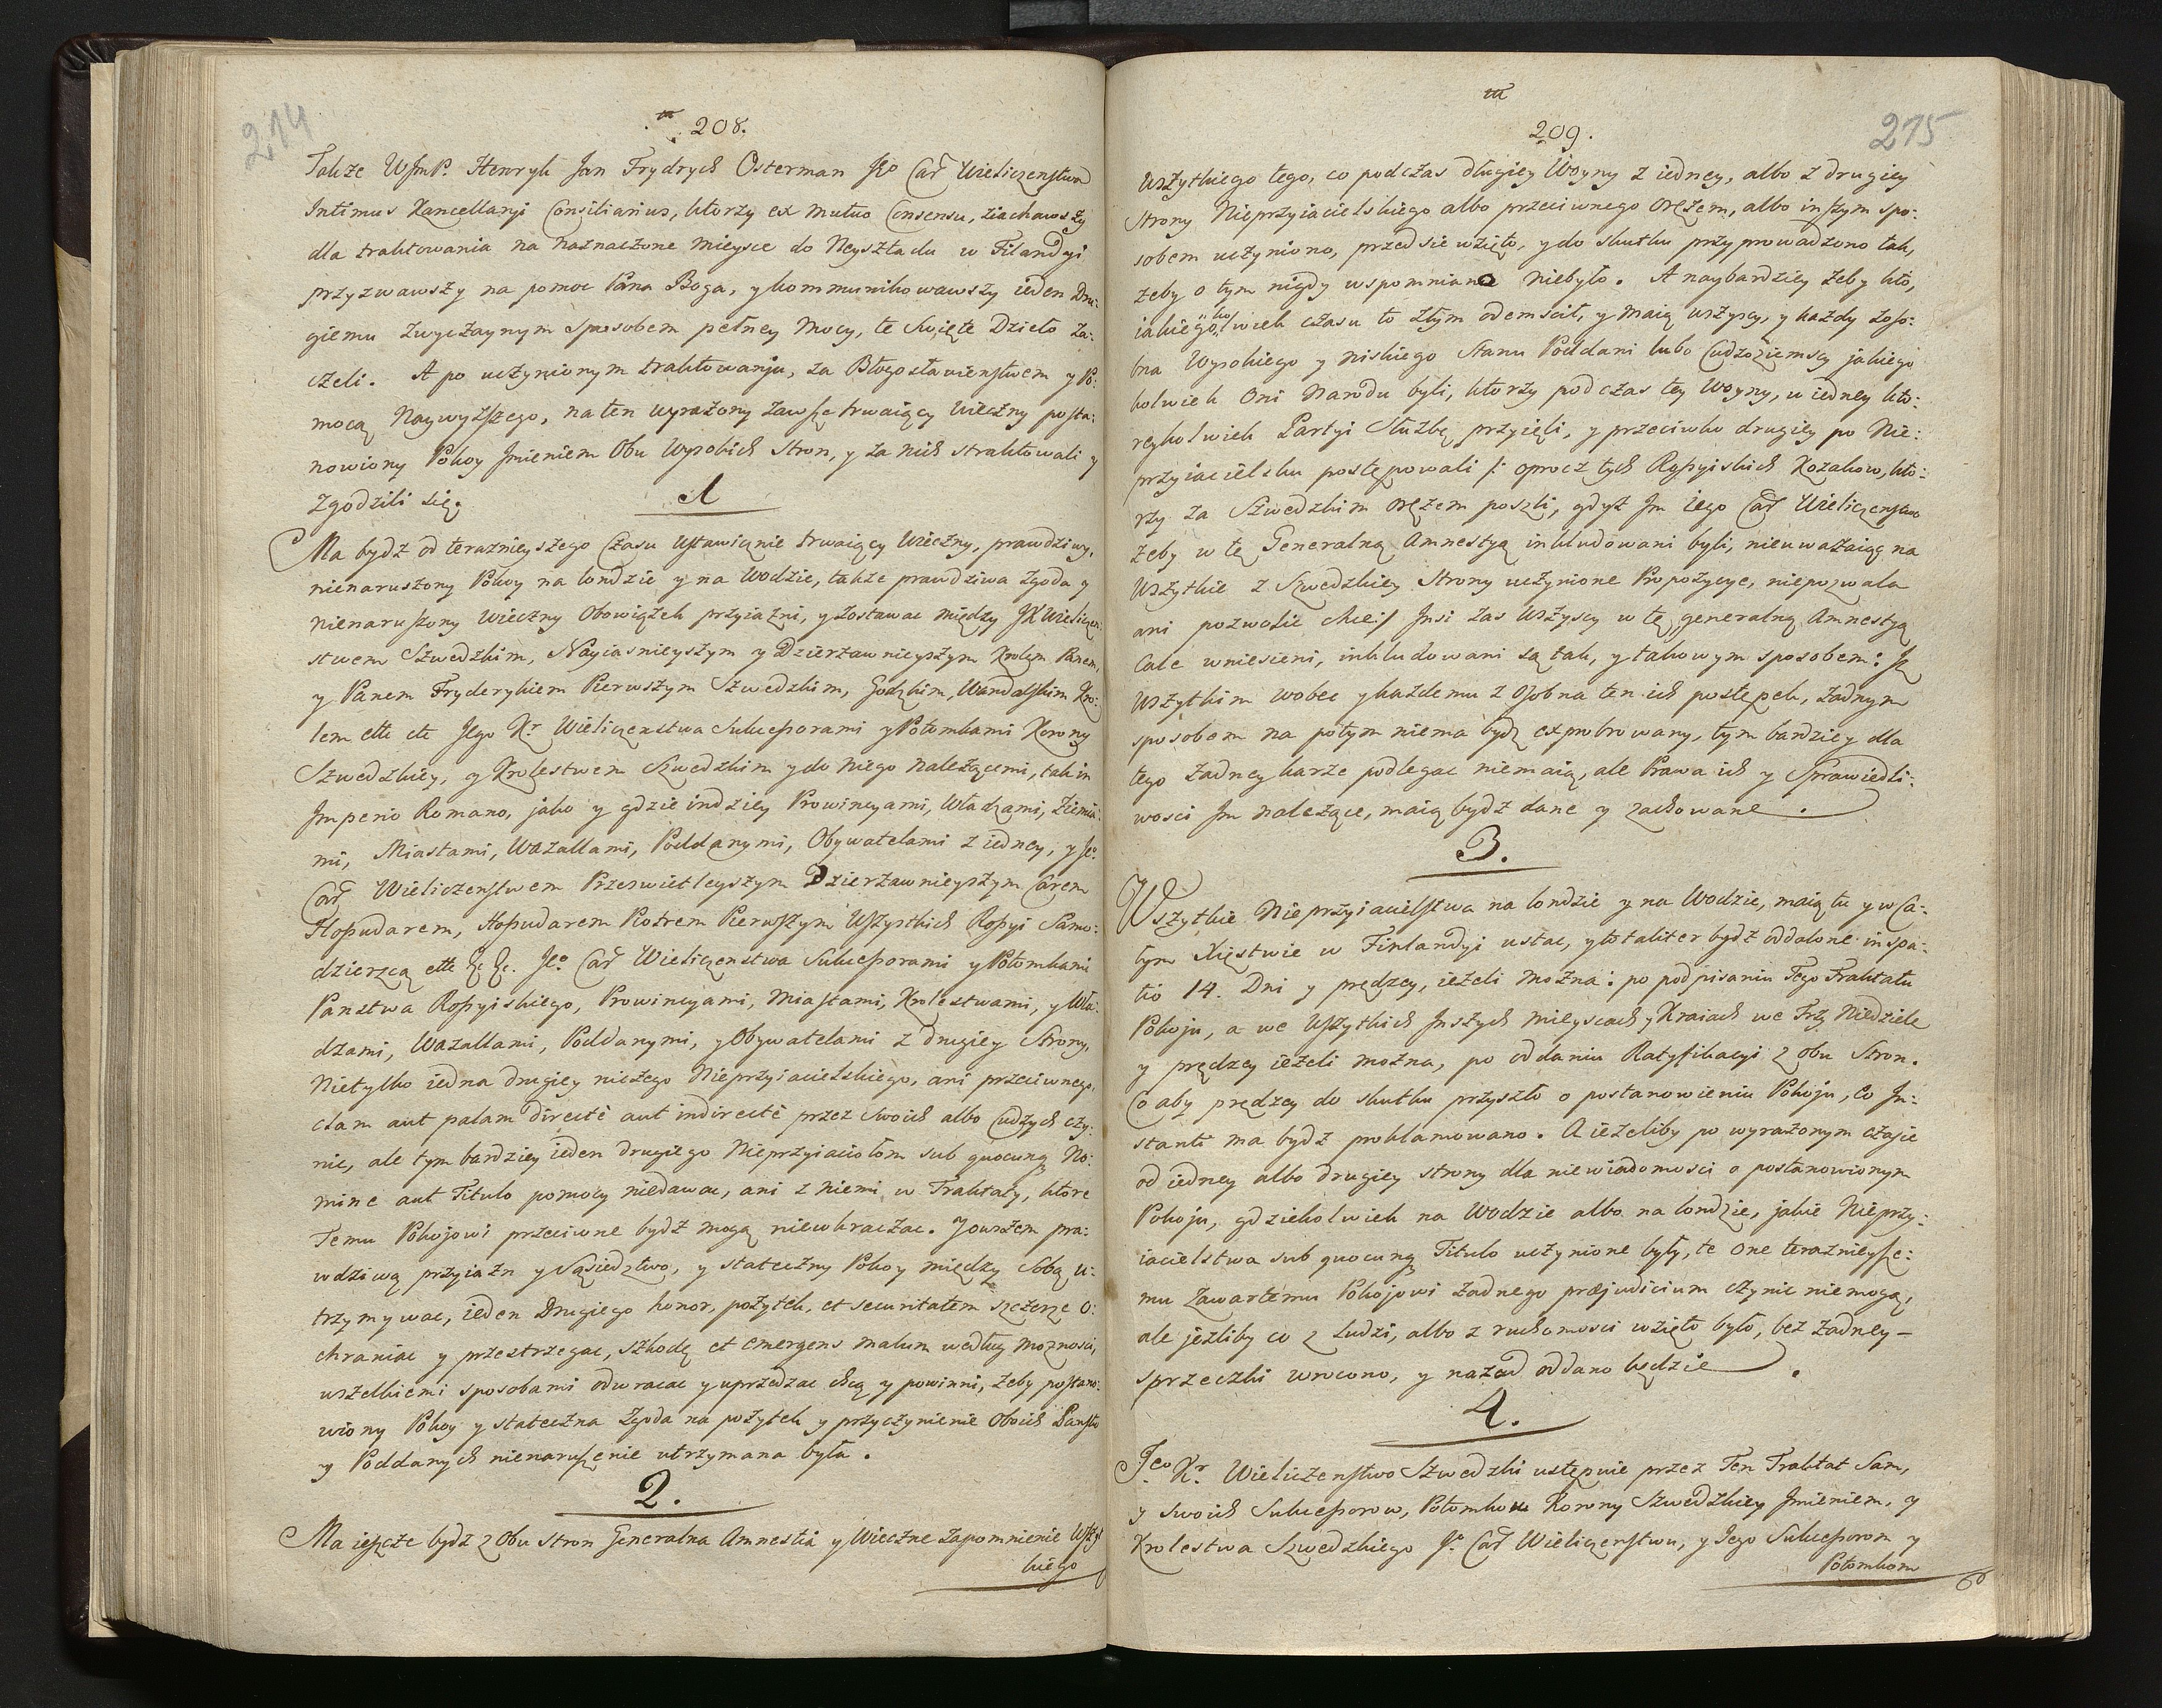 214
208.
Także WJmP. Henryk Jan Frydrych Osterman Jeo Car Wieliczenstwa
Intimus Kancellaryi Consiliarius, ktorzy ex mutuo Consensu, ziachawszy
dla traktowania na naznaczone mieysce do Neysztadu w Filandyi
przyzwawszy na pomoc Pana Boga, y kommunikowawszy ieden Dru:
giemu zwyczaynym sposobem pełney Mocy, te Swięte Dzieło za:
czeli. A po uczynionym traktowaniu, za Błogosławienstwem y Po:
mocą Naywyższego, na ten wyrażony zawsze trwaiący wieczny posta:
nowiony Pokoy Jmieniem Obu Wysokich Stron, y za nich straktowali y
zgodzili się.
1
Ma bydz od teraznieyszego Czasu ustawicznie trwaiący wieczny, prawdziwy,
nienaruszony Pokoy na londzie y na Wodzie, także prawdziwa zgoda y
nienaruszony wieczny Obowiązek przyiazni, y zostawac między JK Wieliczen:
stwem Szwedzkim, Nayiasnieyszym y Dzierzawnieyszym Krolem Panem,
y Panem Fryderykiem Pierwszym Szwedzkim, Godzkim, Wandalskim Kro:
lem ettc etc Jego Kr Wieliczenstwa Sukcessorami y Potomkami Korony
Szwedzkiey, y Krolestwem Szwedzkim y do niego należącemi, tak in
Imperio Romano, jako y gdzie indziey Prowincyami, Władzami, Ziemia:
mi, Miastami, Wazallami, Poddanymi, Obywatelami z iedney, y Jeo
Car Wieliczenstwem Przeswietleyszym Dzierzawnieyszym Carem
Hospudarem, Hospudarem Piotrem Pierwszym Wszystkich Rossyi Samo:
dzierzcą ettc &c &c. Jeo Car Wieliczenstwa Sukcessorami y Potomkami
Panstwa Rossyiskiego, Prowincyami, Miastami, Krolestwami, y Wła:
dzami, Wazallami, Poddanymi, y Obywatelami z drugiey Strony,
Nietylko iedna drugiey niczego Nieprzyiacielskiego, ani przeciwnego,
clam aut palam directè aut indirectè przez swoich albo Cudzych czy:
nic, ale tym bardziey ieden drugiego Nieprzyiaciołom sub quocunq No:
mine aut Titulo pomocy niedawac, ani z niemi w Traktaty, ktore
Temu Pokojowi przeciwne bydz mogą niewkraczac. Jowszem pra:
wdziwą przyiazn y Sąsiedztwo, y stateczny Pokoy między Sobą u:
trzymywac, ieden Drugiego honor, pożytek, et securitatem szczerze o:
chraniac y przestrzegac, szkodę et emergens malum według mozności,
wszelkiemi sposobami odwracac y uprzedzac chcą y powinni, żeby postano:
wiony Pokoy y stateczna Zgoda na pożytek y przyczynienie Oboich Panstw
y Poddanych nienaruszenie utrzymana była.
2.
Ma ieszcze bydz z Obu Stron Generalna Amnestia y Wieczne zapomnienie Wszyt
kiego
215
209.
Wszytkiego tego, co podczas długiey Woyny z iedney, albo z drugiey
Strony Nieprzyiacielskiego albo przeciwnego Orężem, albo inszym spo:
sobem uczyniono, przedsiewzięto, y do skutku przyprowadzono tak,
żeby o tym nigdy wspomniano niebyło. A naybardziey żeby kto,
iakiegokolwiek czasu to złym odemscił, y maią wszyscy, y każdy zoso:
bna Wysokiego y niskiego Stanu Poddani lubo Cudzoziemscy jakiego
kolwiek Oni Narodu byli, ktorzy podczas tey Woyny, u iedney kto:
reykolwiek Partyi Służbę przyięli, y przeciwko drugiey po Nie:
przyiacielsku postępowali /: oprocz tych Rossyiskich Kozakow, kto:
rzy za Szwedzkim orężem poszli, gdyż Jm iego Car Wieliczenstwo
żeby w tę Generalną Amnestyą inkludowani byli, nieuważaiąc na
Wszytkie z Szwedzkiey Strony uczynione Propozycye, niepozwala
ani pozwolic chce:/ Jnsi zas wszyscy w tę generalną Amnestyą
Cale wniesieni, inkludowani są tak, y takowym sposobem: Jz
Wszytkim wobec y każdemu z Osobna ten ich postępek, żadnym
sposobem na potym niema bydz exprobrowany, tym bardziey dla
tego żadney karze podlegac niemaią, ale Prawa ich y Sprawiedli:
wosci Jm należące, maią bydz dane y zachowane.
3.
Wszytkie Nieprzyiacielstwa na londzie y na Wodzie, maią tu y w Ca:
łym Xięstwie w Finlandyi ustac, y totaliter bydz oddalone in spa:
tio 14. Dni y prędzey, ieżeli można: po podpisaniu Tego Traktatu
Pokoju, a we Wszytkich Jnszych mieyscach y Kraiach we Trzy Niedziele
y prędzey ieżeli można, po oddaniu Ratyfikacyi z obu Stron.
Co aby prędzey do skutku przyszło o postanowieniu Pokoju, Co In:
stanti ma bydz proklamowano. A ieżeliby po wyrażonym czasie
od iedney albo drugiey strony dla niewiadomosci o postanowionym
Pokoju, gdziekolwiek na Wodzie albo na londzie, jakie Nieprzy:
iacielstwa sub quocunq Titulo uczynione były, te one teraznieysze:
mu Zawartemu Pokojowi żadnego præjudicium czynic niemogą,
ale jezliby co z Ludzi, albo z ruchomosci wzięto było, bez żadney –
sprzeczki wrocono, y nazad oddano będzie.
4.
Jeo Kr. Wieliczenstwo Szwedzki ustępuie przez Ten Traktat Sam,
y swoich Sukcessorow, Potomkow Korony Szwedzkiey Jmieniem, y
Krolestwa Szwedzkiego Jo Car Wieliczenstwu, y Jego Sukcessorom y
Potomkom